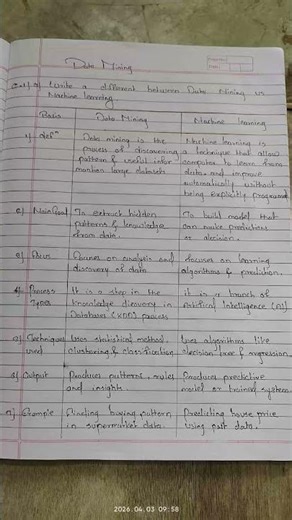 Data Mining
Q.1) a) Write a different between Data Mining vs
Machine learning
Basis Data Mining Machine learning
1) defn Data mining is the Machine learning is
process of discovering a technique that allow
pattern & useful infor computer to learn from
mation large datasets data and improve
automatically without
being explicitly programed
2) Main Goal To extract hidden To build model that
patterns & knowledge can make predictions
from data. or decision.
3) Focus Focuses on analysis and focuses on learning
discovery of data algorithms & prediction.
4) Process It is a step in the it is a branch of
Types knowledge discovery in Artificial Intelligence (AI)
Databases (KDD) process
5) Techniques Uses statistical method, Uses algorithms like
used clustering & classification decision tree & regression.
6) Output Produces patterns, rules Produces predictive
and insights. model or trained system
7) Example Finding buying pattern Predicting house price
in supermarket data. using past data.
2026.04.03 09:58